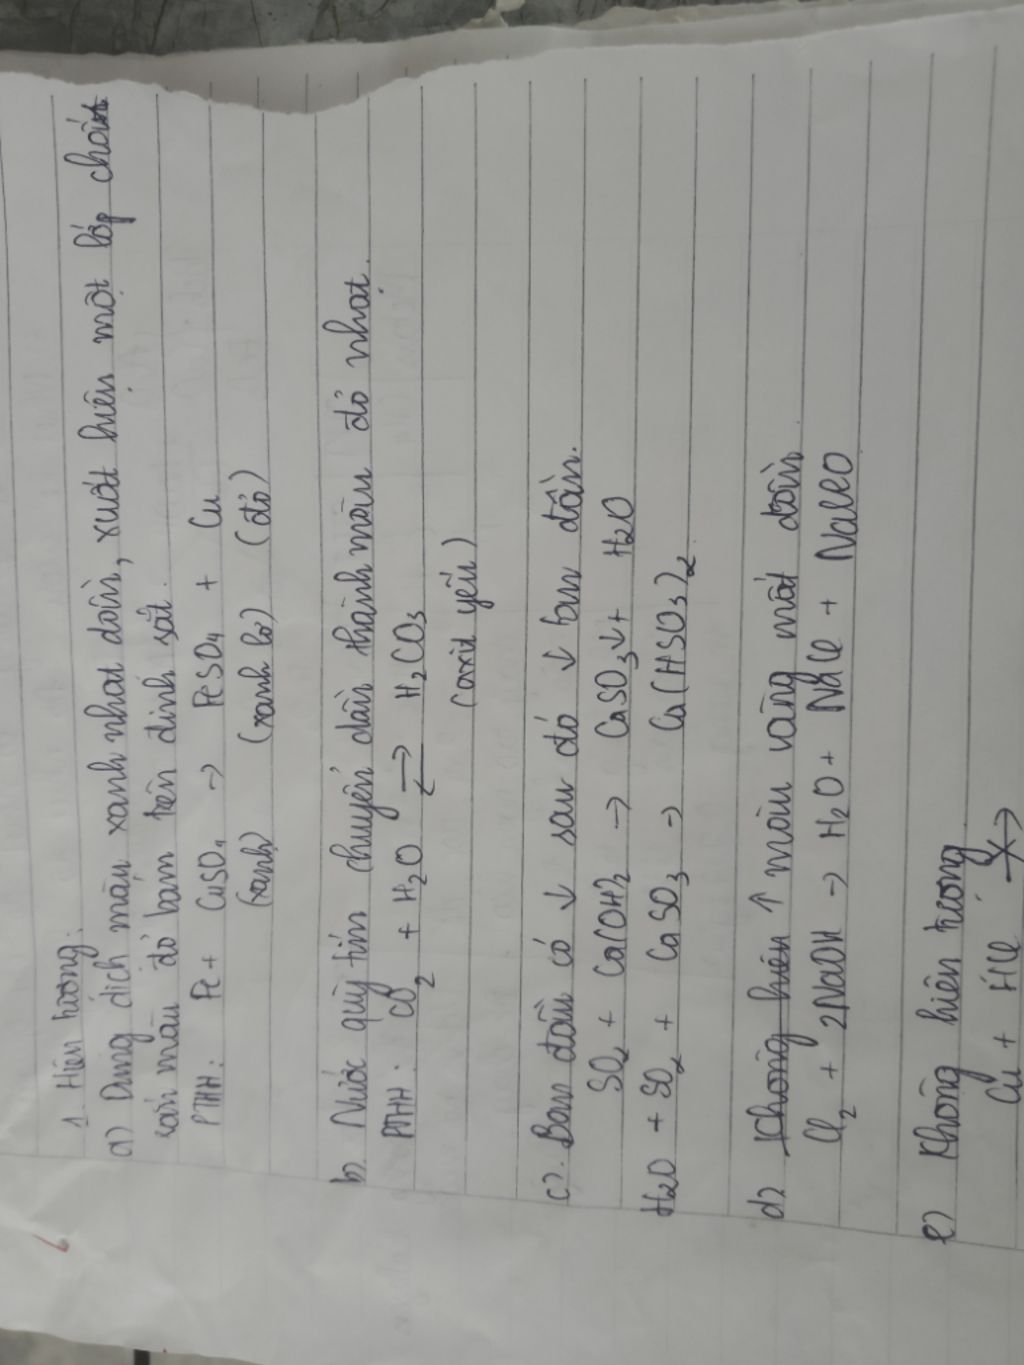 1 Hiện tượng:
a) Dung dịch màu xanh nhạt dần, xuất hiện một lớp chất
rắn màu đỏ bám trên đinh sắt.
PTHH: Fe + CuSO4 → FeSO4 + Cu
(xanh) (xanh lơ) (đỏ)
b) Nước quỳ tím chuyển dần thành màu đỏ nhạt.
PTHH: CO2 + H2O ⇌ H2CO3
(axit yếu)
c). Ban đầu có ↓ sau đó ↓ tan dần.
SO2 + Ca(OH)2 → CaSO3↓ + H2O
H2O + SO2 + CaSO3 → Ca(HSO3)2
d) Không hiện ↑ màu vàng mất dần
Cl2 + 2NaOH → H2O + NaCl + NaClO
e) Không hiện tượng
Cu + HCl